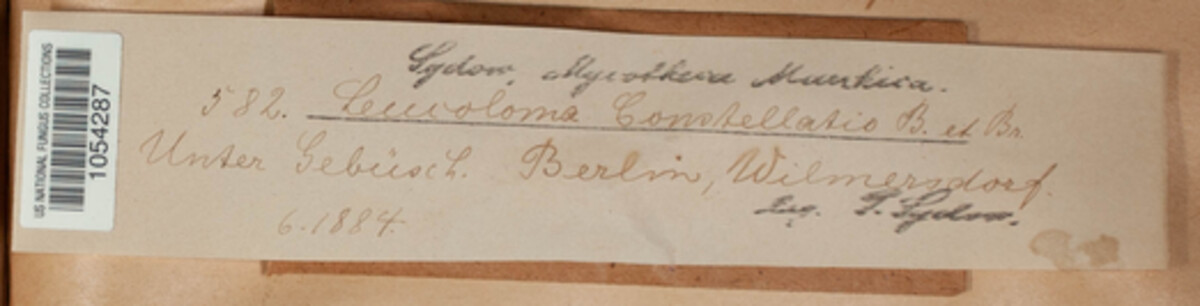 US NATIONAL FUNGUS COLLECTIONS
1054287
Sydow, Mycotheca Marchica.
582. Leucoloma Constellatio B. et Br.
Unter Gebüsch. Berlin, Wilmersdorf.
6.1884.
Leg. P. Sydow.